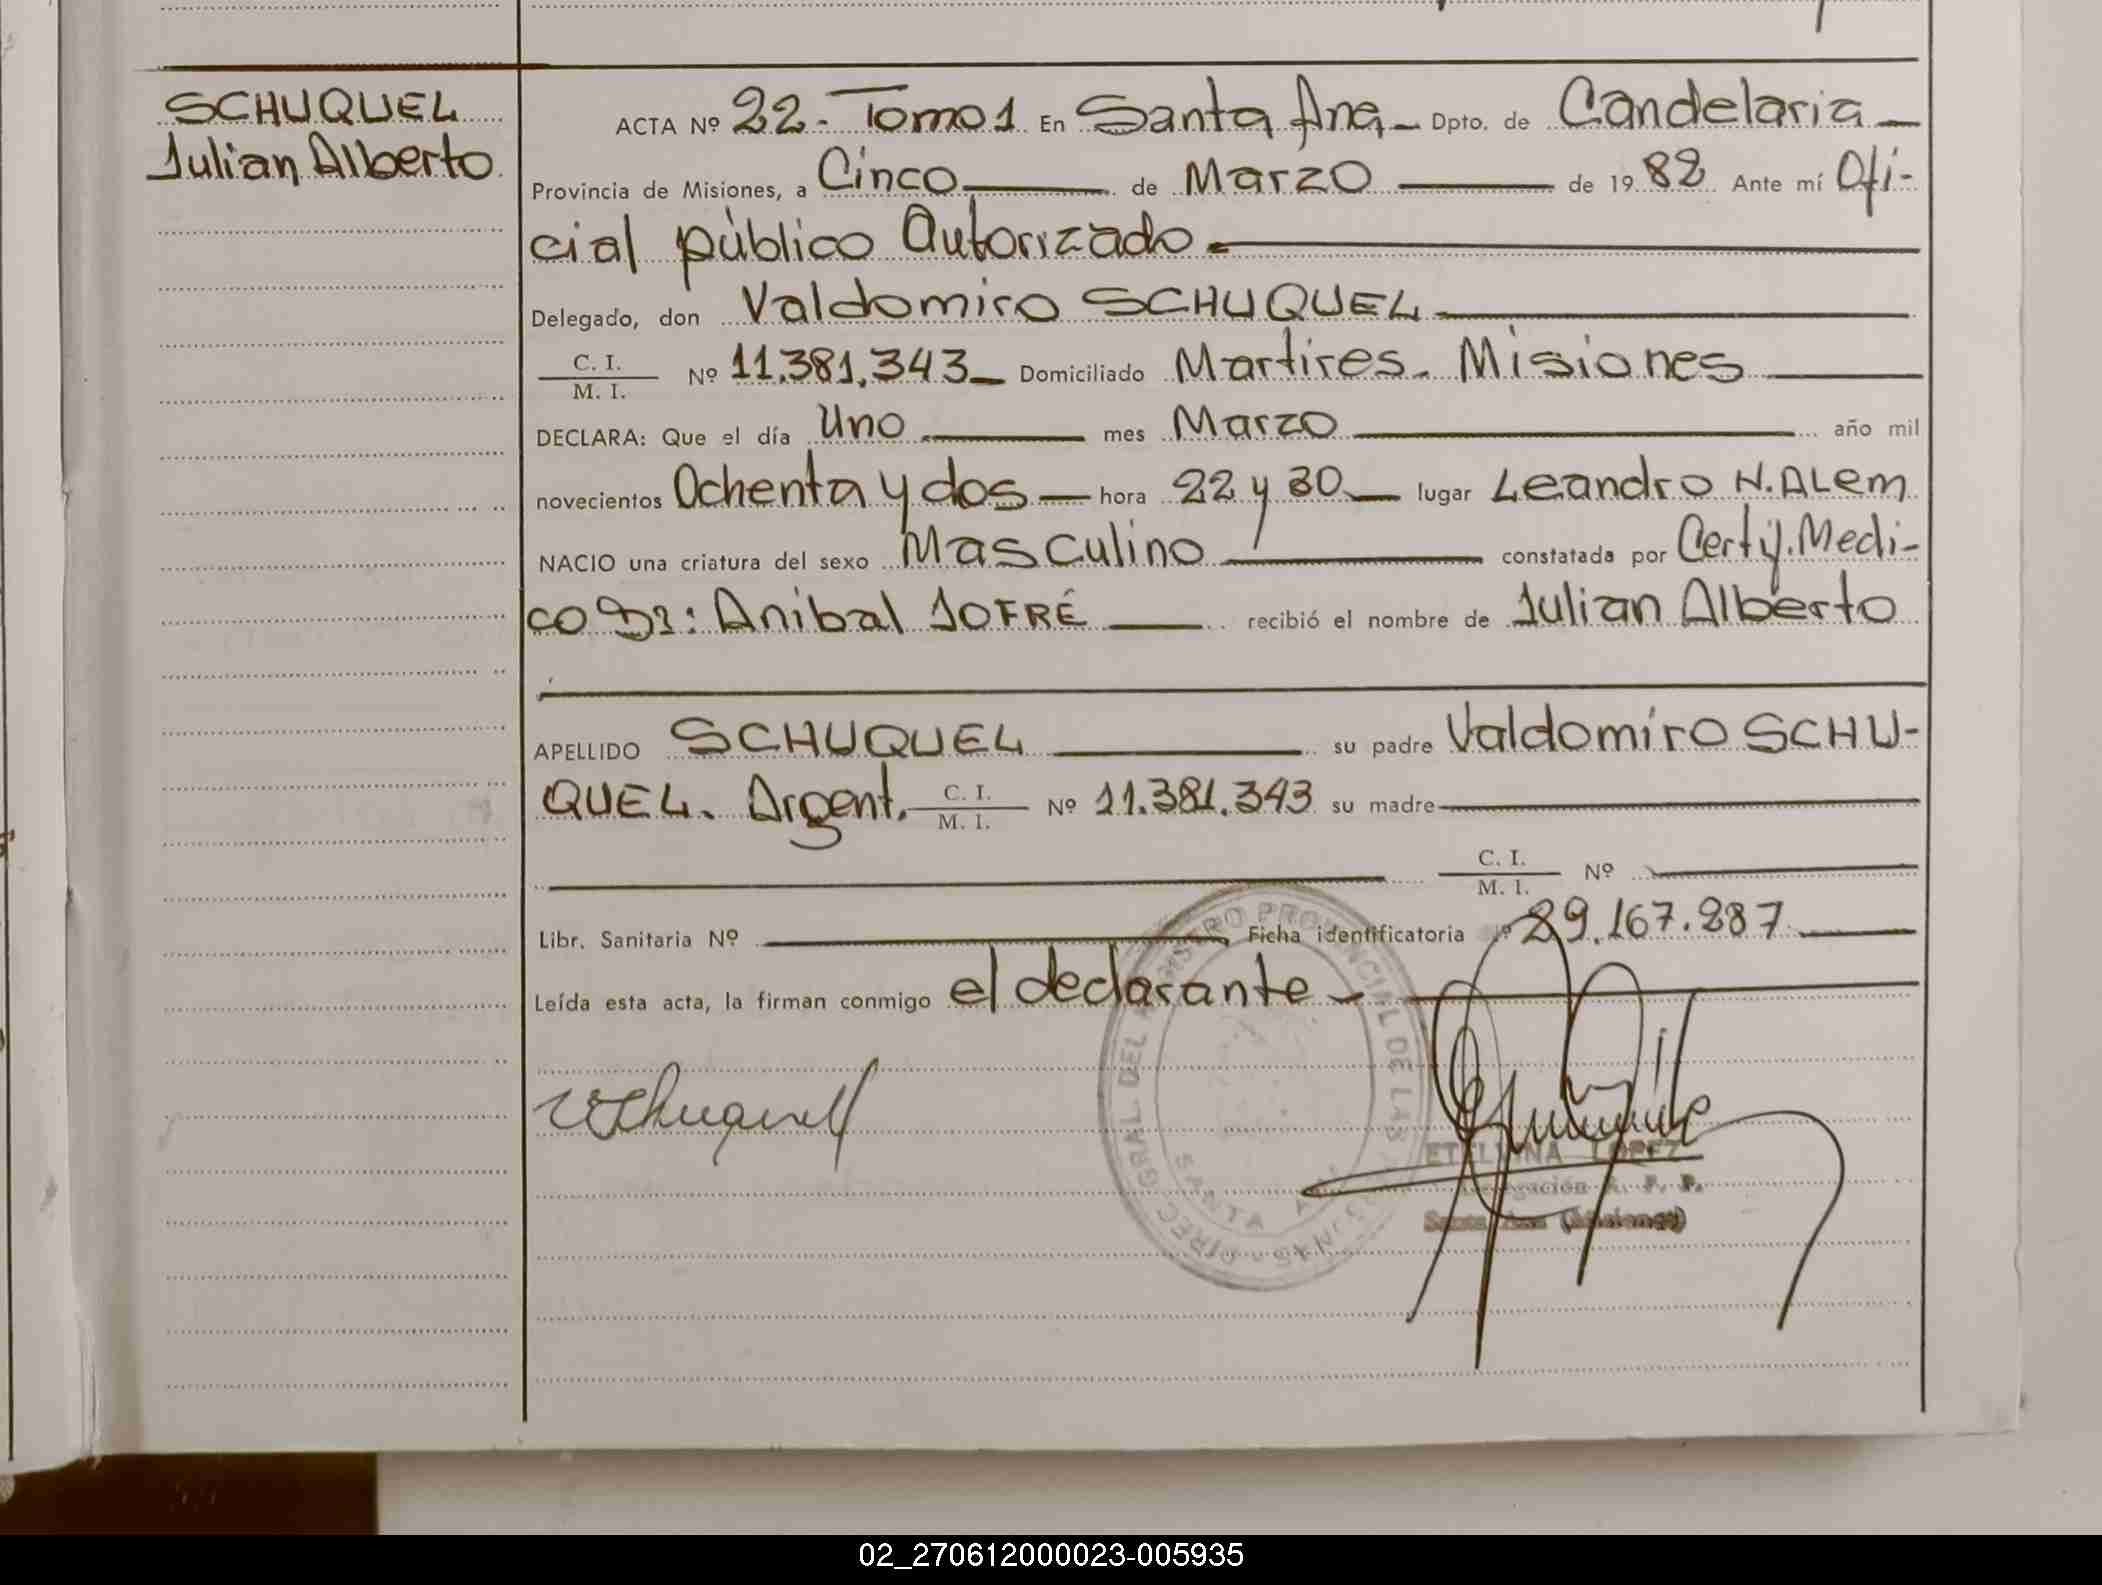 SCHUQUEL
Julian Alberto
ACTA Nº 22-Tomo 1 En Santa Ana Dpto. de Candelaria
Provincia de Misiones, a Cinco de Marzo de 1982 Ante mí Ofi-
cial público Autorizado.
Delegado, don Valdomiro SCHUQUEL
C. I.
M. I. Nº 11.381.343 Domiciliado Martires. Misiones
DECLARA: Que el día Uno mes Marzo año mil
novecientos Ochenta y dos hora 22 y 30 lugar Leandro N. ALem
NACIO una criatura del sexo Masculino constatada por Certif. Medi-
co Dr: Anibal JOFRÉ recibió el nombre de Julian Alberto
APELLIDO SCHUQUEL su padre Valdomiro SCHU-
QUEL. Argent. C. I.
M. I. Nº 11.381.343 su madre
C. I.
M. I. Nº
Libr. Sanitaria Nº Ficha identificatoria Nº 29.167.287
Leída esta acta, la firman conmigo el declarante
DIREC. GRAL. DEL REGISTRO PROVINCIAL DE LAS PERSONAS
SANTA ANA
ETELVINA LOPEZ
Delegación R. P. P.
Santa Ana (Misiones)
02_270612000023-005935